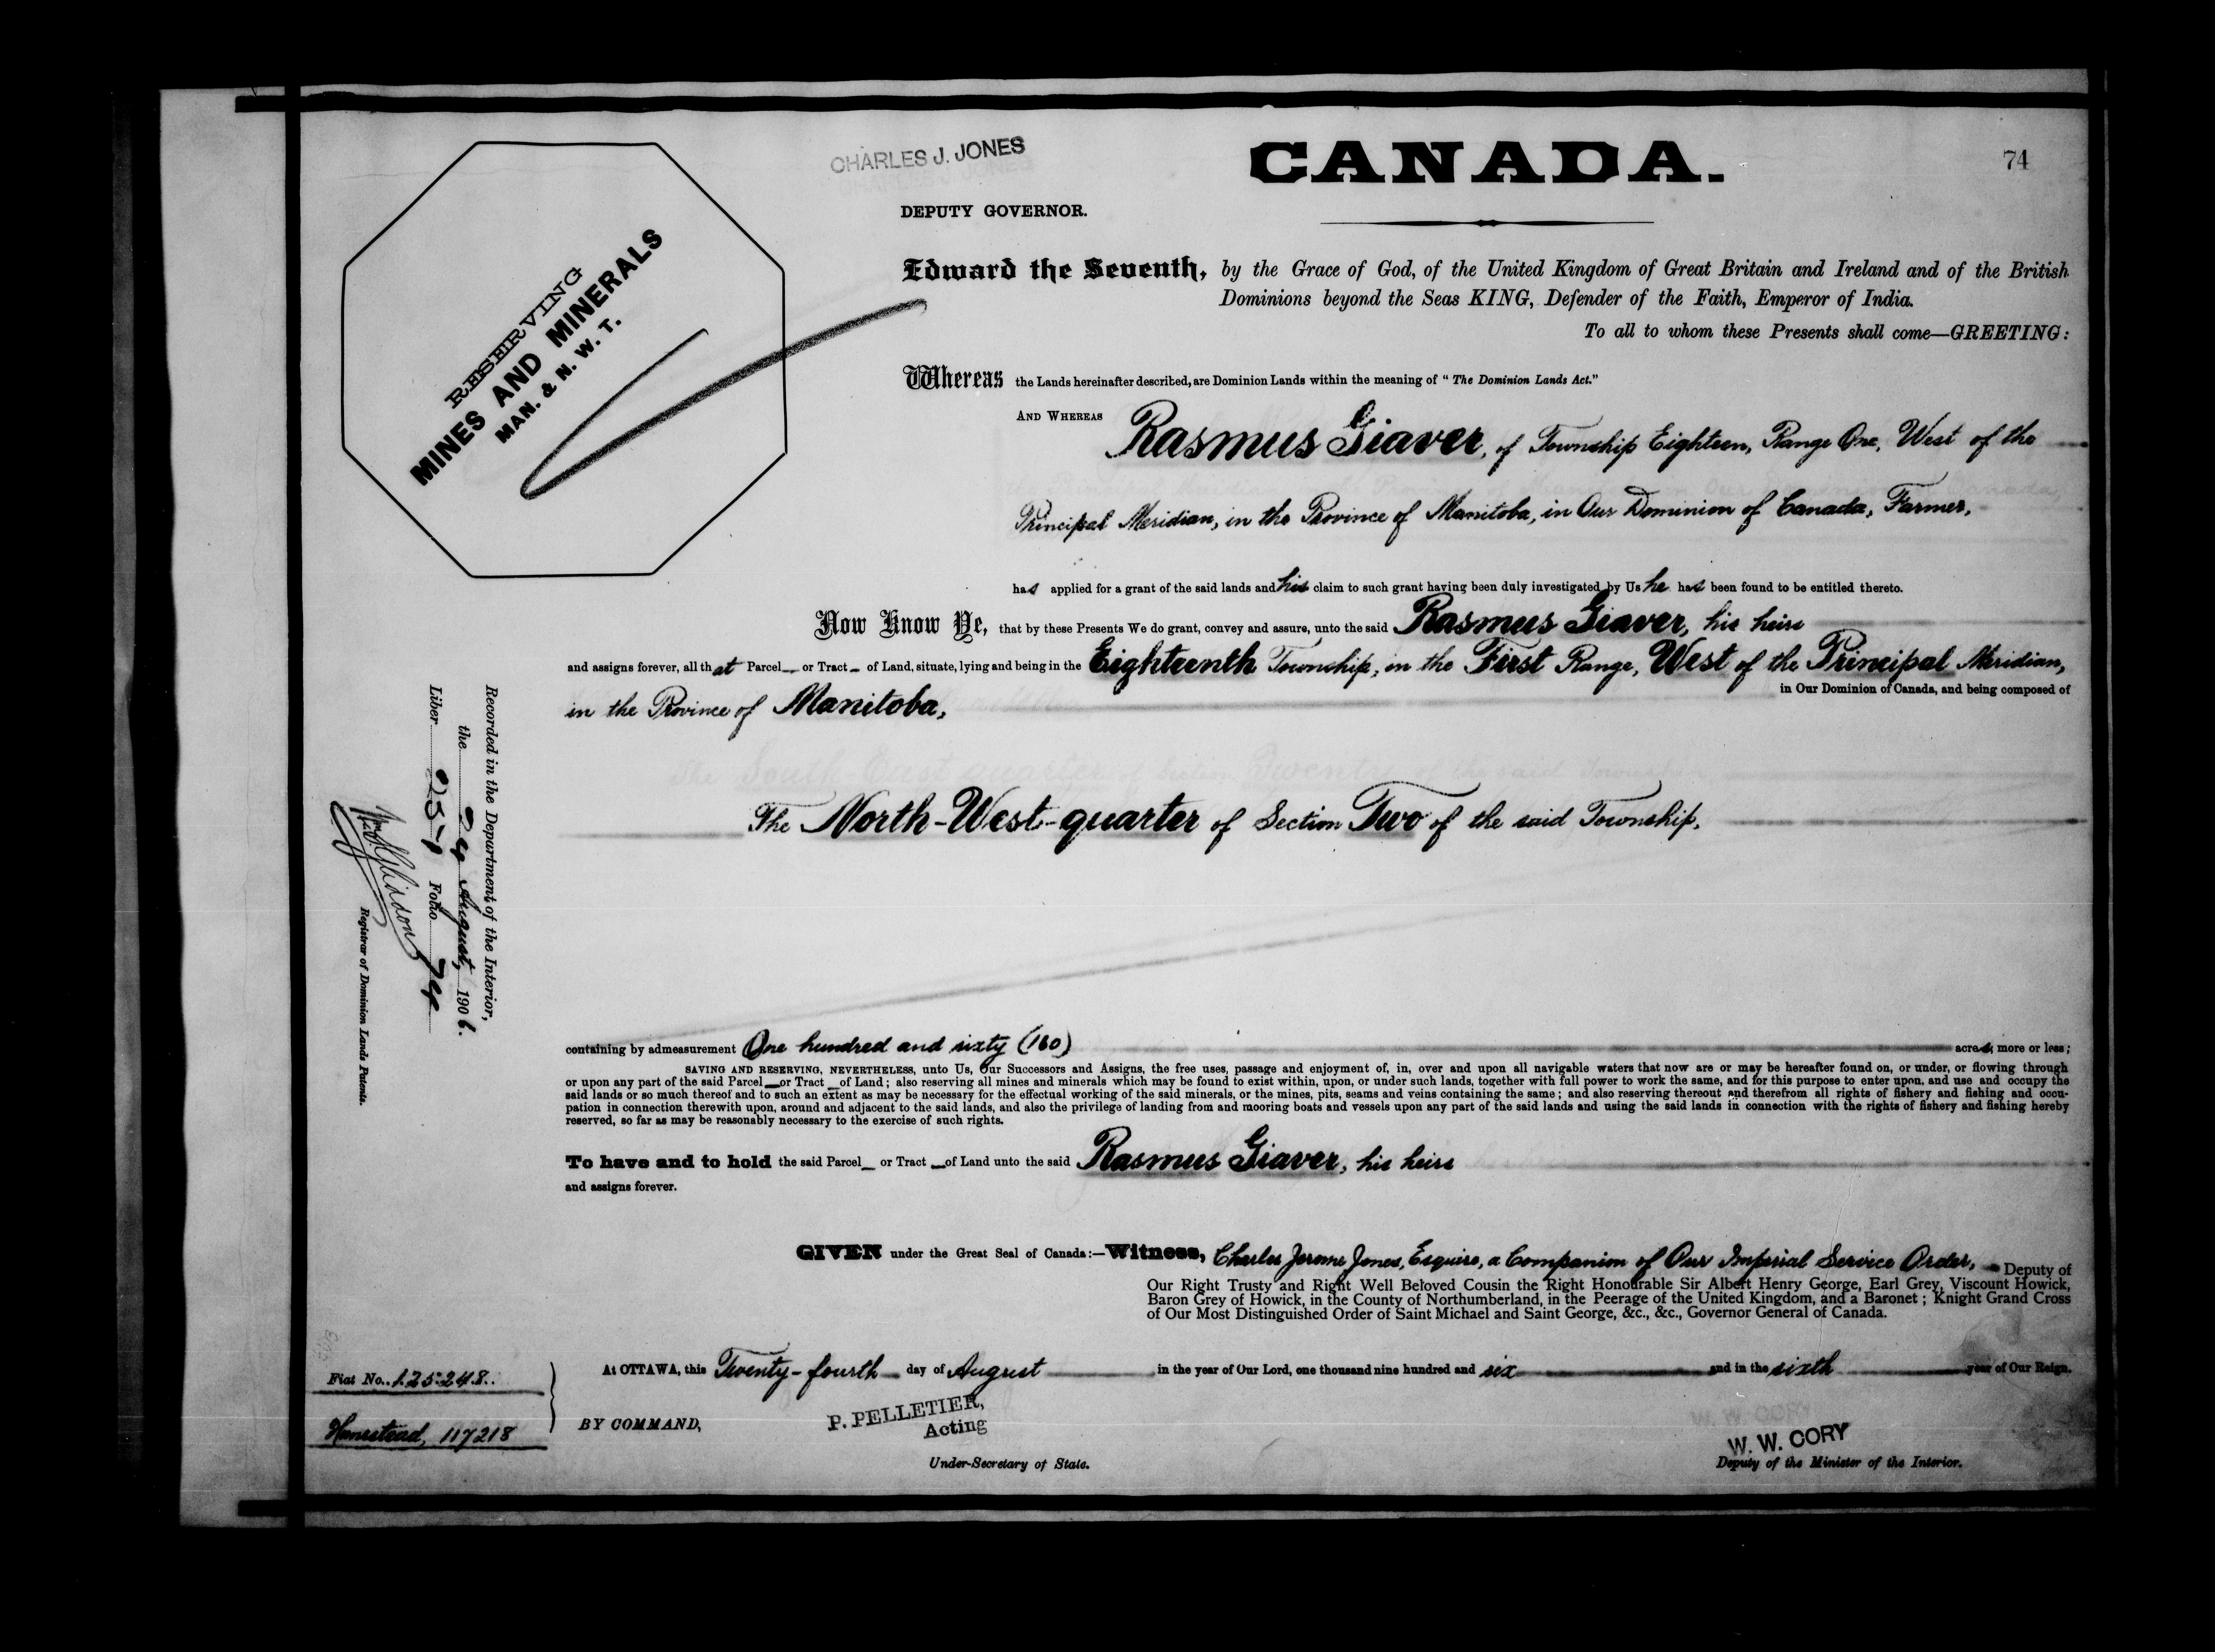 CHARLES J. JONES
CANADA.
74
DEPUTY GOVERNOR.
RESERVING
MINES AND MINERALS
MAN. & N. W. T.
Edward the Seventh, by the Grace of God, of the United Kingdom of Great Britain and Ireland and of the British
Dominions beyond the Seas KING, Defender of the Faith, Emperor of India.
To all to whom these Presents shall come—GREETING:
Whereas the Lands hereinafter described, are Dominion Lands within the meaning of "The Dominion Lands Act."
AND WHEREAS Rasmus Giaver, of Township Eighteen, Range One, West of the
Principal Meridian, in the Province of Manitoba, in Our Dominion of Canada, Farmer,
has applied for a grant of the said lands and his claim to such grant having been duly investigated by Us he has been found to be entitled thereto.
Now Know Ye, that by these Presents We do grant, convey and assure, unto the said Rasmus Giaver, his heirs
and assigns forever, all that Parcel or Tract of Land, situate, lying and being in the Eighteenth Township, in the First Range, West of the Principal Meridian,
in the Province of Manitoba, in Our Dominion of Canada, and being composed of
The North-West-quarter of Section Two of the said Township.
Recorded in the Department of the Interior,
the 24 August, 1906.
Liber 257 Folio 74
Registrar of Dominion Lands Patents.
containing by admeasurement One hundred and sixty (160) acres, more or less;
SAVING AND RESERVING, NEVERTHELESS, unto Us, Our Successors and Assigns, the free uses, passage and enjoyment of, in, over and upon all navigable waters that now are or may be hereafter found on, or under, or flowing through
or upon any part of the said Parcel or Tract of Land; also reserving all mines and minerals which may be found to exist within, upon, or under such lands, together with full power to work the same, and for this purpose to enter upon, and use and occupy the
said lands or so much thereof and to such an extent as may be necessary for the effectual working of the said minerals, or the mines, pits, seams and veins containing the same; and also reserving thereout and therefrom all rights of fishery and fishing and occu-
pation in connection therewith upon, around and adjacent to the said lands, and also the privilege of landing from and mooring boats and vessels upon any part of the said lands and using the said lands in connection with the rights of fishery and fishing hereby
reserved, so far as may be reasonably necessary to the exercise of such rights.
To have and to hold the said Parcel or Tract of Land unto the said Rasmus Giaver, his heirs
and assigns forever.
GIVEN under the Great Seal of Canada:—Witness, Charles Jerome Jones, Esquire, a Companion of Our Imperial Service Order, Deputy of
Our Right Trusty and Right Well Beloved Cousin the Right Honourable Sir Albert Henry George, Earl Grey, Viscount Howick,
Baron Grey of Howick, in the County of Northumberland, in the Peerage of the United Kingdom, and a Baronet; Knight Grand Cross
of Our Most Distinguished Order of Saint Michael and Saint George, &c., &c., Governor General of Canada.
At OTTAWA, this Twenty-fourth day of August in the year of Our Lord, one thousand nine hundred and six and in the sixth year of Our Reign.
Fiat No. 125248.
Homestead, 117218
BY COMMAND,
P. PELLETIER,
Acting
Under-Secretary of State.
W. W. CORY
Deputy of the Minister of the Interior.